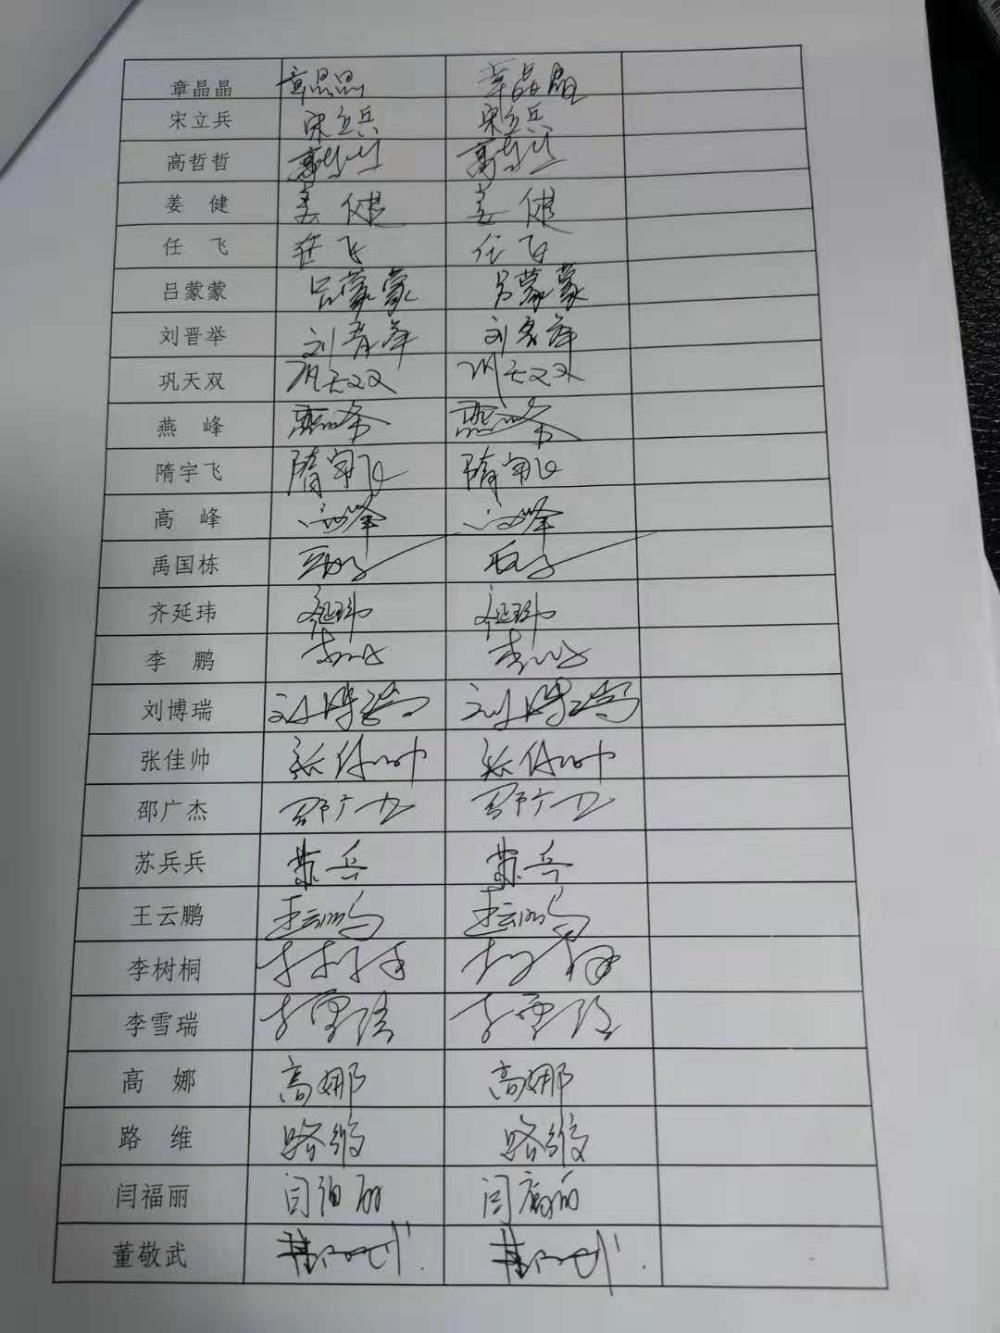 章晶晶 章晶晶 章晶晶
宋立兵 宋立兵 宋立兵
高哲哲 高哲哲 高哲哲
姜 健 姜健 姜健
任 飞 任飞 任飞
吕蒙蒙 吕蒙蒙 吕蒙蒙
刘晋举 刘晋举 刘晋举
巩天双 巩天双 巩天双
燕 峰 燕峰 燕峰
隋宇飞 隋宇飞 隋宇飞
高 峰 高峰 高峰
禹国栋
齐延玮 齐延玮 齐延玮
李 鹏 李鹏 李鹏
刘博瑞 刘博瑞 刘博瑞
张佳帅 张佳帅 张佳帅
邵广杰 邵广杰 邵广杰
苏兵兵 苏兵 苏兵
王云鹏 王云鹏 王云鹏
李树桐 李树桐 李树桐
李雪瑞 李雪瑞 李雪瑞
高 娜 高娜 高娜
路 维 路维 路维
闫福丽 闫福丽 闫福丽
董敬武